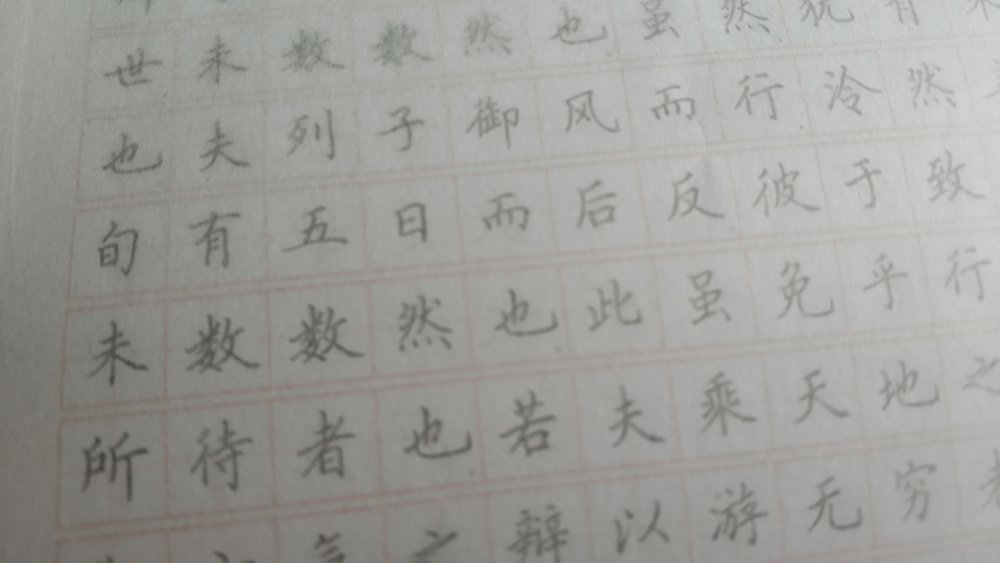 世未数数然也虽然犹有未
也夫列子御风而行泠然
旬有五日而后反彼于致
未数数然也此虽免乎行
所待者也若夫乘天地之
气之辩以游无穷者